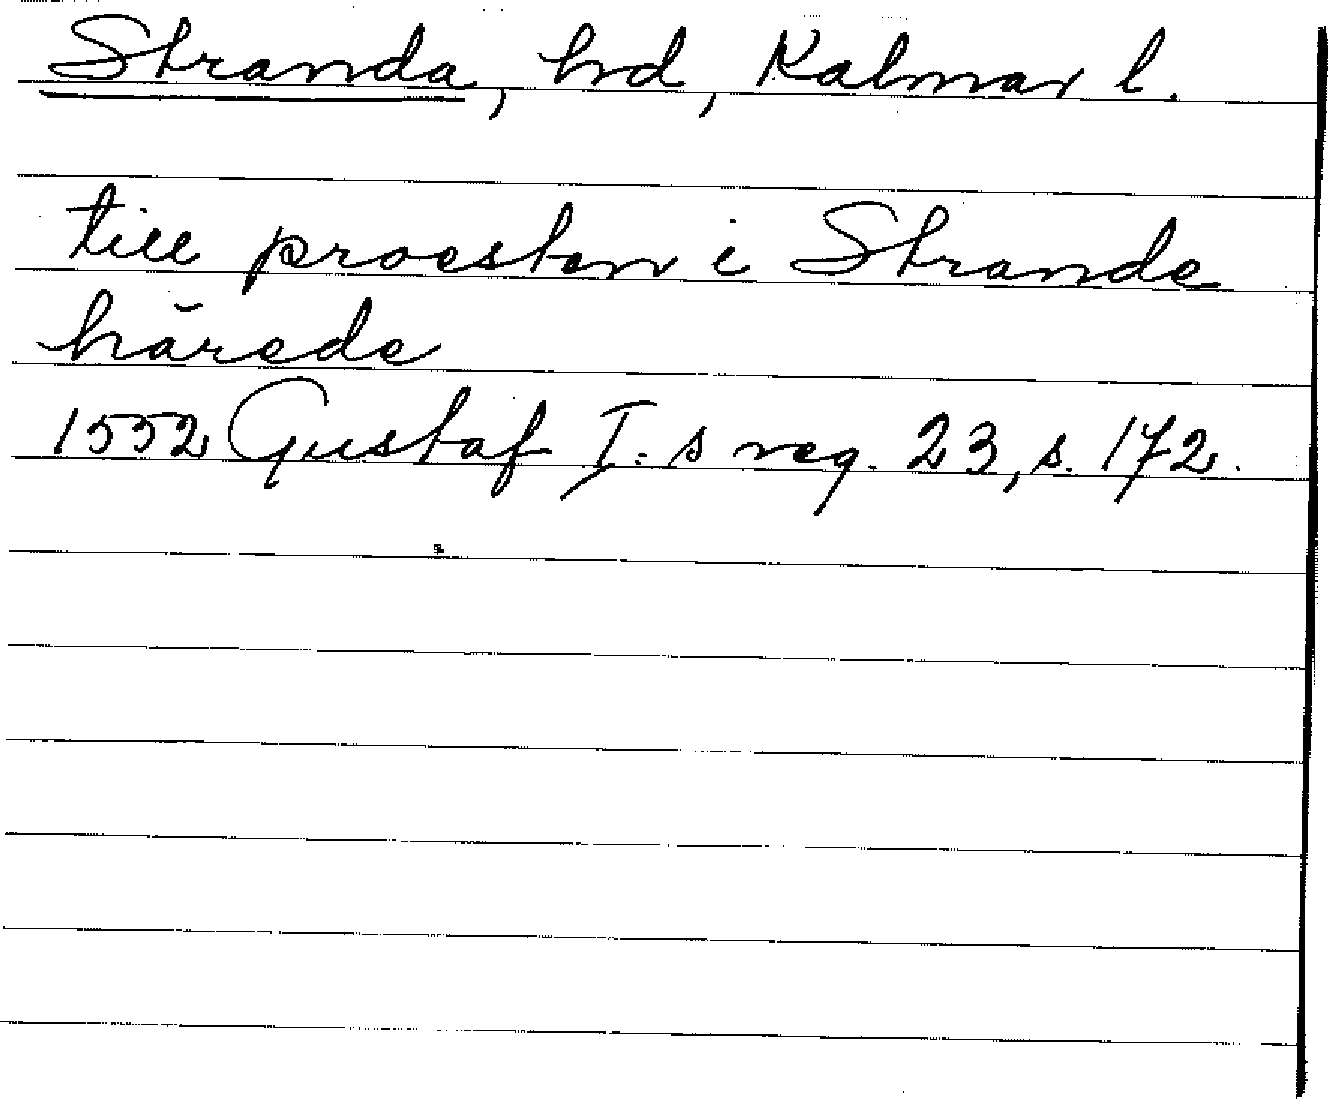 Stranda, hd, Kalmar l.
till proesten i Strande
härede
1552 Gustaf I:s reg. 23, s. 172.